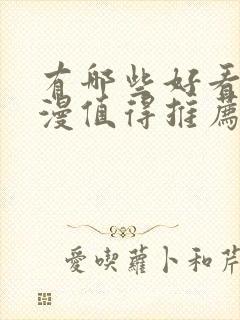 有哪些好看
漫值得推薦
愛喫蘿卜和芹